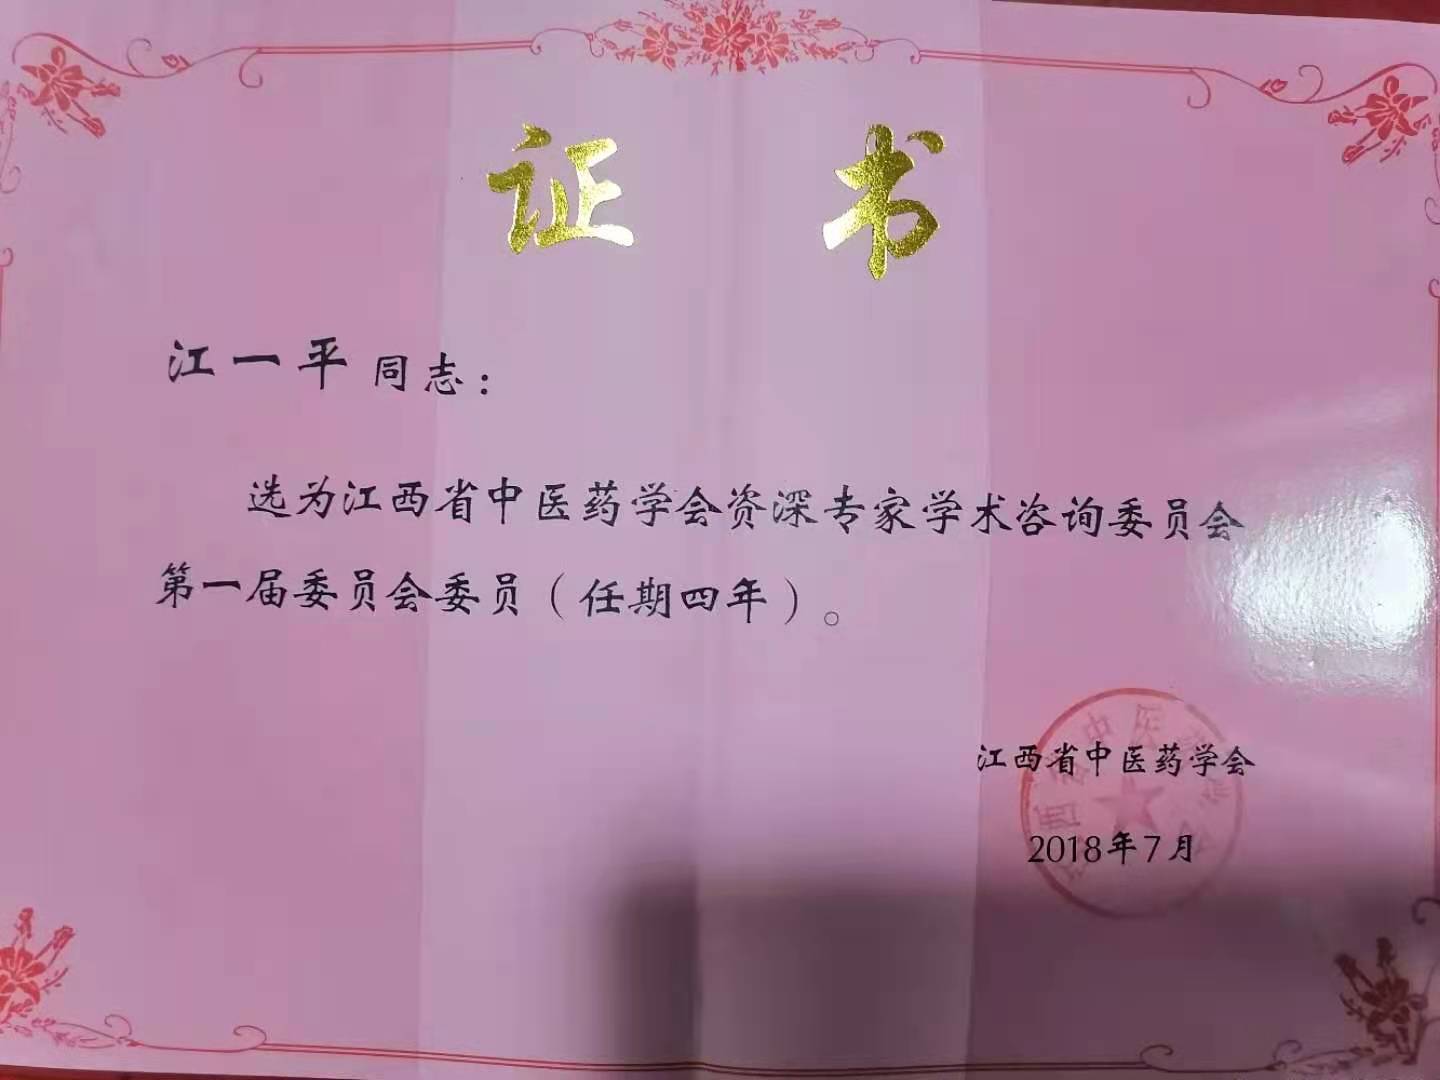 证书
江一平同志：
选为江西省中医药学会资深专家学术咨询委员会
第一届委员会委员（任期四年）。
江西省中医药学会
2018年7月